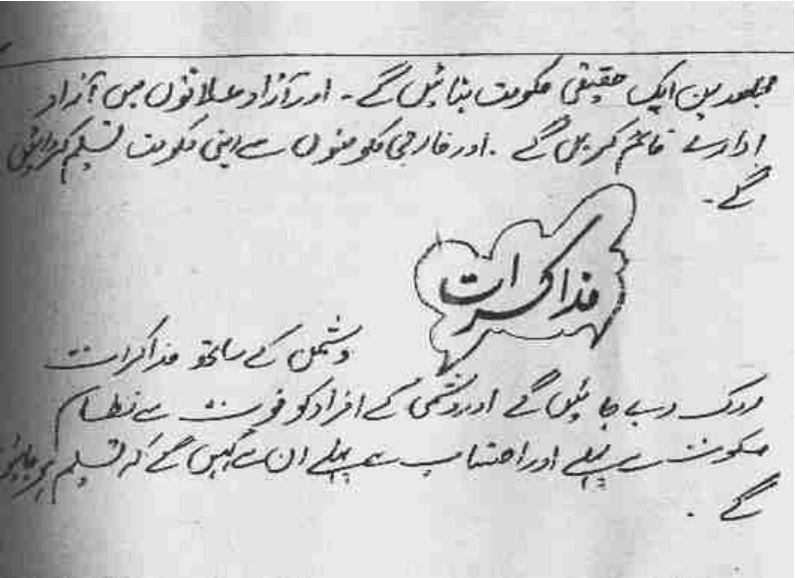 مجاہدین ایک حقیقی حکومت بنائیں گے - اور آزاد علاقوں میں آزاد
ادارے قائم کریں گے . اور خارجی حکومتوں سے اپنی حکومت تسلیم کروائیں
گے -
مذاکرات
دشمن کے ساتھ مذاکرات
روک دیے جائیں گے اور دشمن کے افراد کو قوت سے نظام
حکومت سے پہلے اور احتساب سے پہلے ان سے کہیں گے کہ تسلیم ہو جائیں
گے .